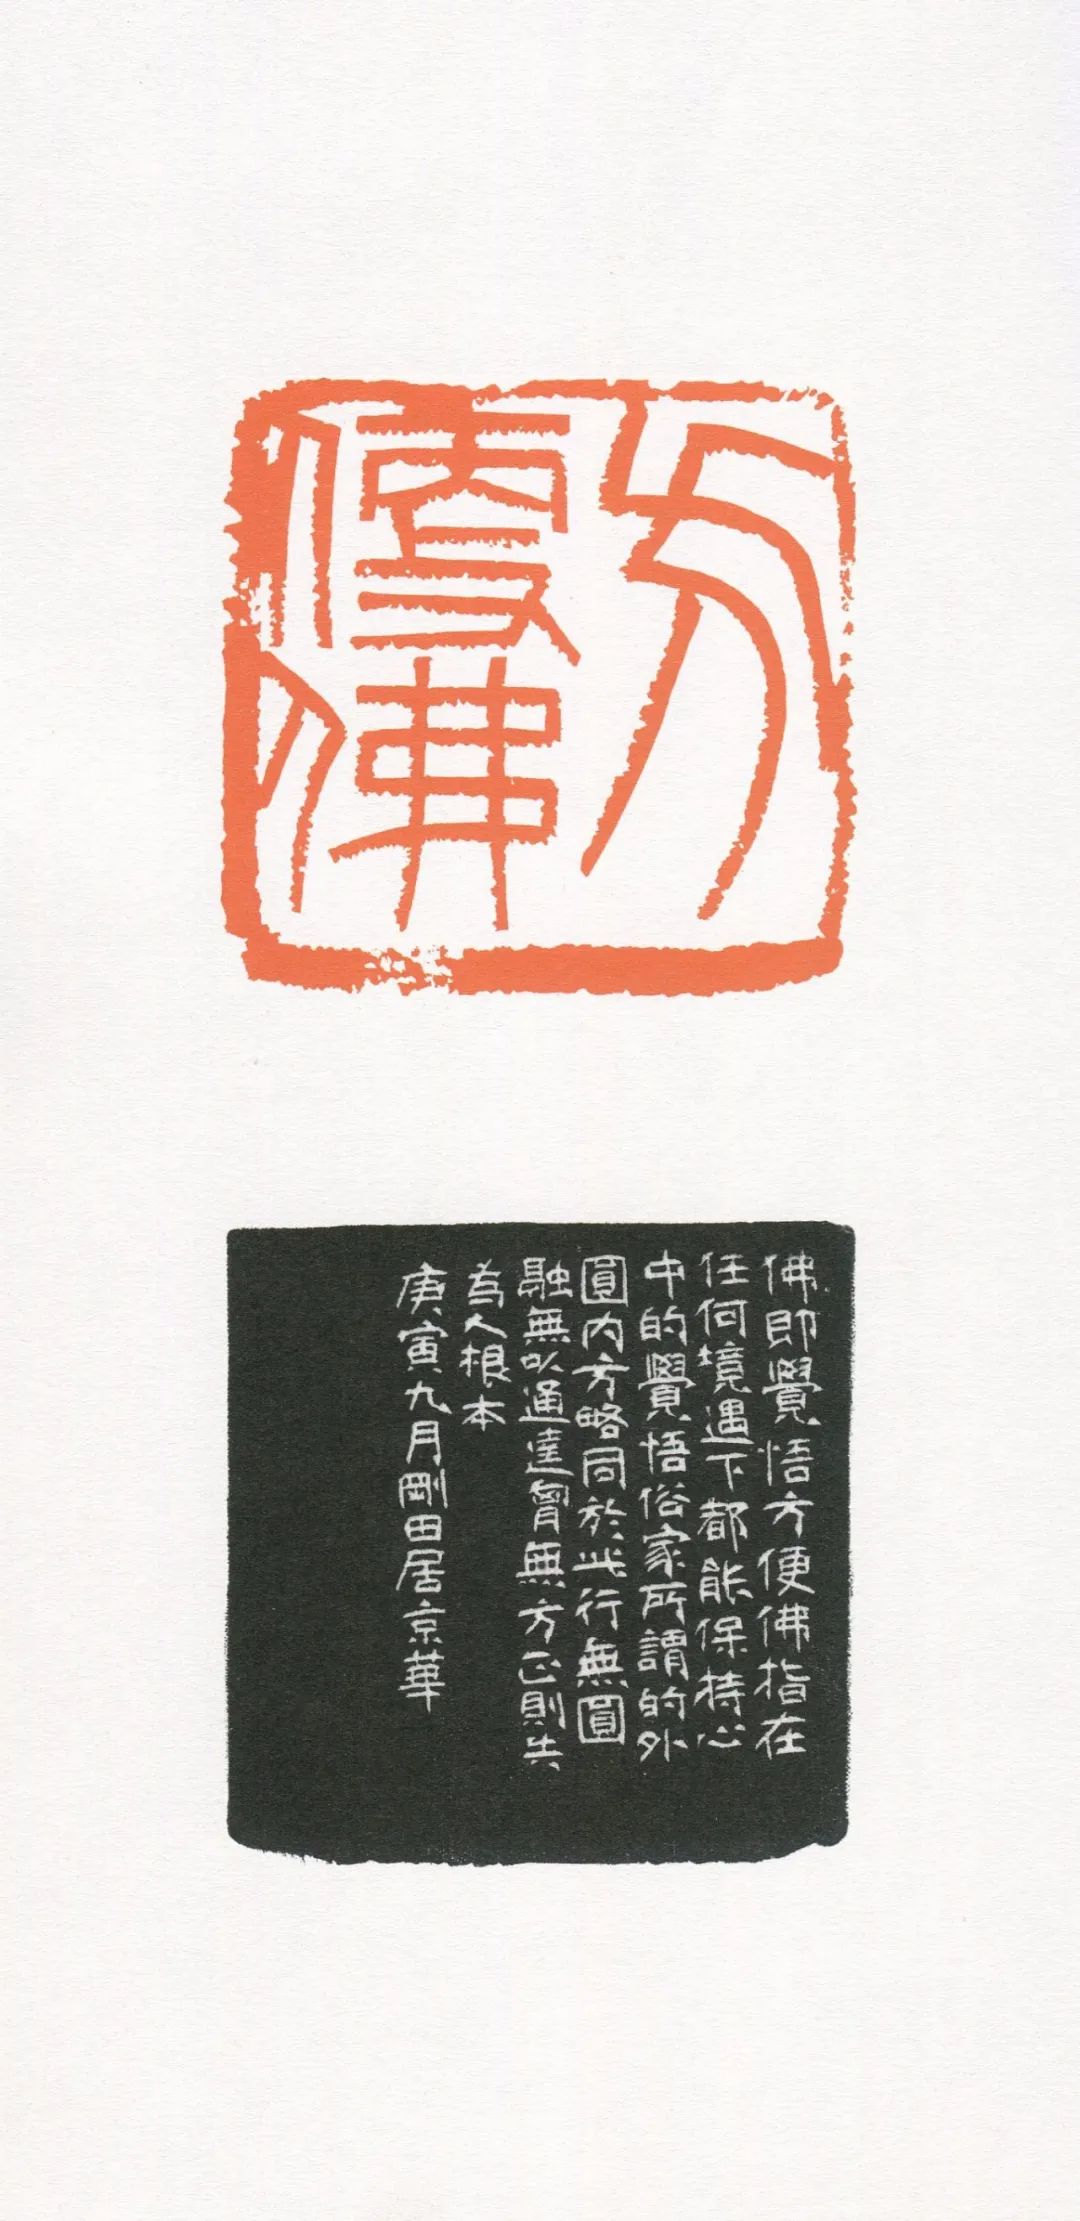 方便佛
佛即覺悟方便佛指在
任何境遇下都能保持心
中的覺悟俗家所謂的外
圓內方略同於此行無圓
融無以通達胷無方正則失
為人根本
庚寅九月剛田居京華